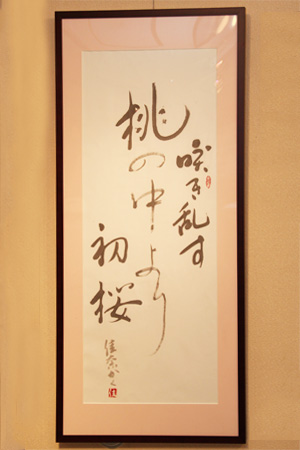 咲き乱す
桃の中より
初桜